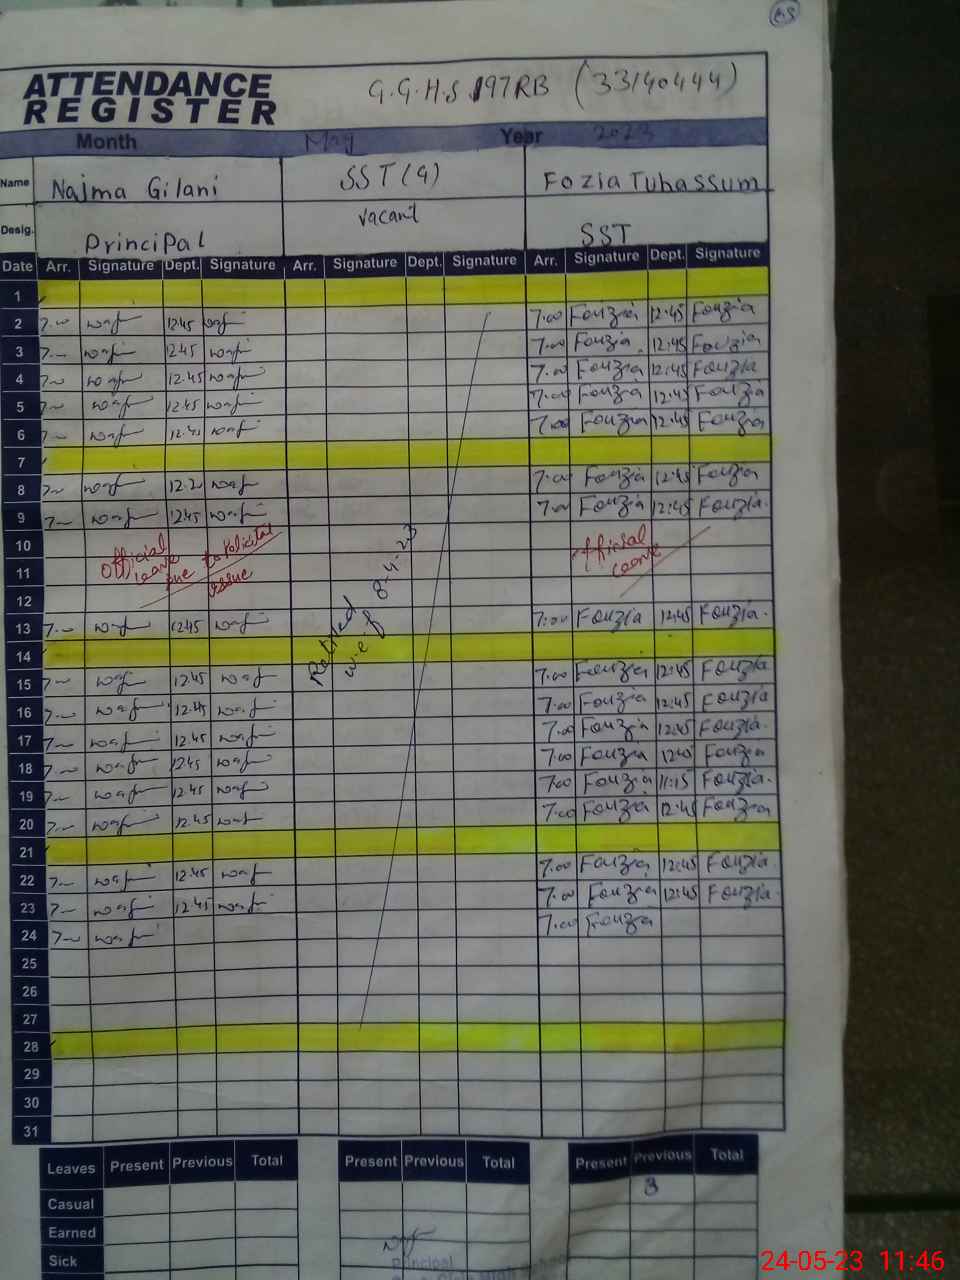 65
ATTENDANCE
REGISTER
G.G.H.S 197RB (33140444)
Month May Year 2023
Name Najma Gilani SST (9) Fozia Tubassum
Desig. Principal vacant SST
Date Arr. Signature Dept. Signature Arr. Signature Dept. Signature Arr. Signature Dept. Signature
1
2 7.00 12.45 7.00 Fouzia 12:45 Fouzia
3 7.00 12.45 7.00 Fouzia 12:45 Fouzia
4 7.00 12.45 7.00 Fouzia 12:45 Fouzia
5 7.00 12.45 7.00 Fouzia 12:45 Fouzia
6 7.00 12.45 7.00 Fouzia 12:45 Fouzia
7
8 7.00 7.00 Fouzia 12:45 Fouzia
9 7.00 12.45 7.00 Fouzia 12:45 Fouzia.
10 official leave due to Political issue official leave
11
12
13 7.00 12.45 7:00 Fouzia 12:45 Fouzia.
14 Retired w.e.f 8-4-23
15 7.00 12.45 7.00 Fouzia 12:45 Fouzia
16 7.00 12.45 7.00 Fouzia 12:45 Fouzia
17 7.00 12.45 7.00 Fouzia 12:45 Fouzia.
18 7.00 12.45 7.00 Fouzia 12:45 Fouzia
19 7.00 12.45 7.00 Fouzia 11:15 Fouzia.
20 7.00 12.45 7.00 Fouzia 12:45 Fouzia
21
22 7.00 12.45 7.00 Fouzia 12:45 Fouzia.
23 7.00 12.45 7.00 Fouzia 12:45 Fouzia.
24 7.00 7.00 Fouzia
25
26
27
28
29
30
31
Leaves Present Previous Total Present Previous Total Present Previous Total
Casual 3
Earned
Sick
Principal
24-05-23 11:46